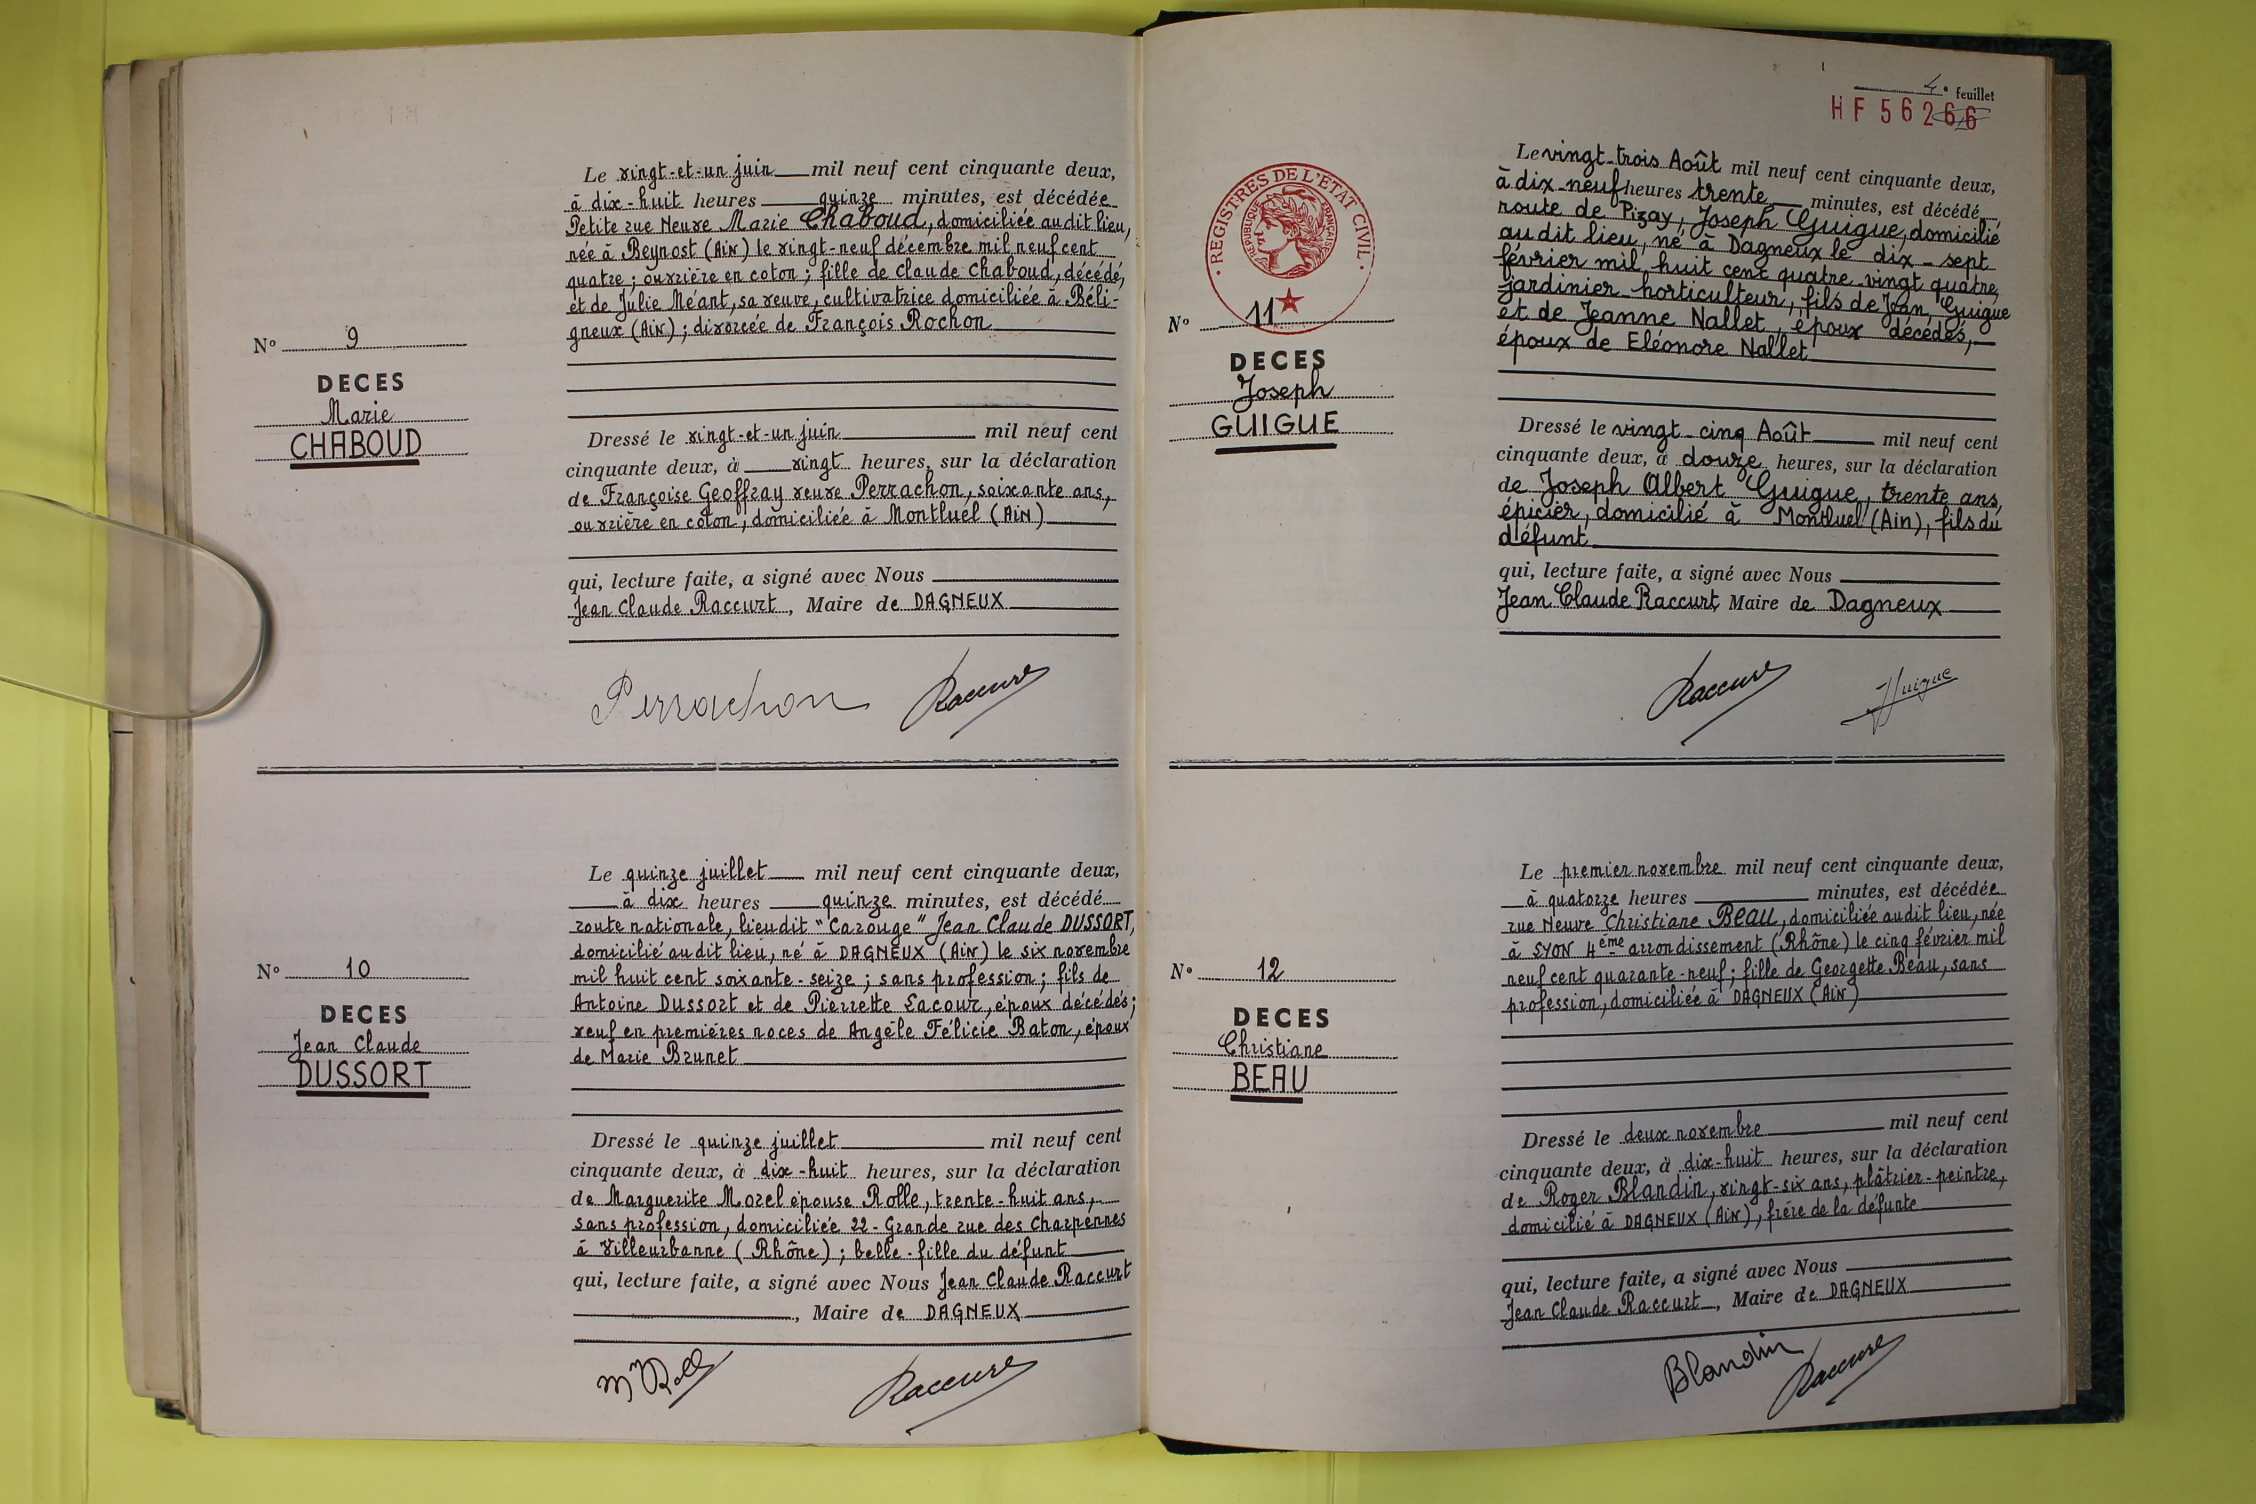 N° 9
DECES
Marie
CHABOUD
Le vingt-et-un juin mil neuf cent cinquante deux,
à dix-huit heures quinze minutes, est décédée
Petite rue Neuve Marie Chaboud, domiciliée audit lieu,
née à Beynost (AiN) le vingt-neuf décembre mil neuf cent
quatre ; ouvrière en coton ; fille de Claude Chaboud, décédé,
et de Julie Méant, sa veuve, cultivatrice domiciliée à Béli-
gneux (AiN) ; divorcée de François Rochon
Dressé le vingt-et-un juin mil neuf cent
cinquante deux, à vingt heures, sur la déclaration
de Françoise Geoffray veuve Perrachon, soixante ans,
ouvrière en coton, domiciliée à Montluel (AiN)
qui, lecture faite, a signé avec Nous
Jean Claude Raccurt, Maire de DAGNEUX
Perrachon Raccurt
N° 10
DECES
Jean Claude
DUSSORT
Le quinze juillet mil neuf cent cinquante deux,
à dix heures quinze minutes, est décédé
route nationale, lieudit "Carouge" Jean Claude DUSSORT,
domicilié audit lieu, né à DAGNEUX (AiN) le six novembre
mil huit cent soixante-seize ; sans profession ; fils de
Antoine Dussort et de Pierrette Lacour, époux décédés ;
veuf en premières noces de Angèle Félicie Baton, époux
de Marie Brunet
Dressé le quinze juillet mil neuf cent
cinquante deux, à dix-huit heures, sur la déclaration
de Marguerite Morel épouse Rolle, trente-huit ans,
sans profession, domiciliée 22 - Grande rue des Charpennes
à Villeurbanne (Rhône) ; belle-fille du défunt
qui, lecture faite, a signé avec Nous Jean Claude Raccurt
, Maire de DAGNEUX
Raccurt
4e feuillet
HF 56266
REGISTRES DE L'ETAT CIVIL
REPUBLIQUE FRANÇAISE
N° 11
DECES
Joseph
GUIGUE
Le vingt-trois Août mil neuf cent cinquante deux,
à dix-neuf heures trente minutes, est décédé
route de Pizay, Joseph Guigue, domicilié
au dit lieu, né à Dagneux le dix-sept
février mil huit cent quatre-vingt quatre,
jardinier-horticulteur, fils de Jean Guigue
et de Jeanne Nallet, époux décédés,
époux de Eléonore Nallet
Dressé le vingt-cinq Août mil neuf cent
cinquante deux, à douze heures, sur la déclaration
de Joseph Albert Guigue, trente ans,
épicier, domicilié à Montluel (Ain), fils du
défunt
qui, lecture faite, a signé avec Nous
Jean Claude Raccurt Maire de Dagneux
Raccurt Guigue
N° 12
DECES
Christiane
BEAU
Le premier novembre mil neuf cent cinquante deux,
à quatorze heures minutes, est décédée
rue Neuve Christiane BEAU, domiciliée audit lieu, née
à LYON 4ème arrondissement (Rhône) le cinq février mil
neuf cent quarante-neuf ; fille de Georgette Beau, sans
profession, domiciliée à DAGNEUX (AiN)
Dressé le deux novembre mil neuf cent
cinquante deux, à dix-huit heures, sur la déclaration
de Roger Blandin, vingt-six ans, plâtrier-peintre,
domicilié à DAGNEUX (AiN), frère de la défunte
qui, lecture faite, a signé avec Nous
Jean Claude Raccurt, Maire de DAGNEUX
Blandin Raccurt